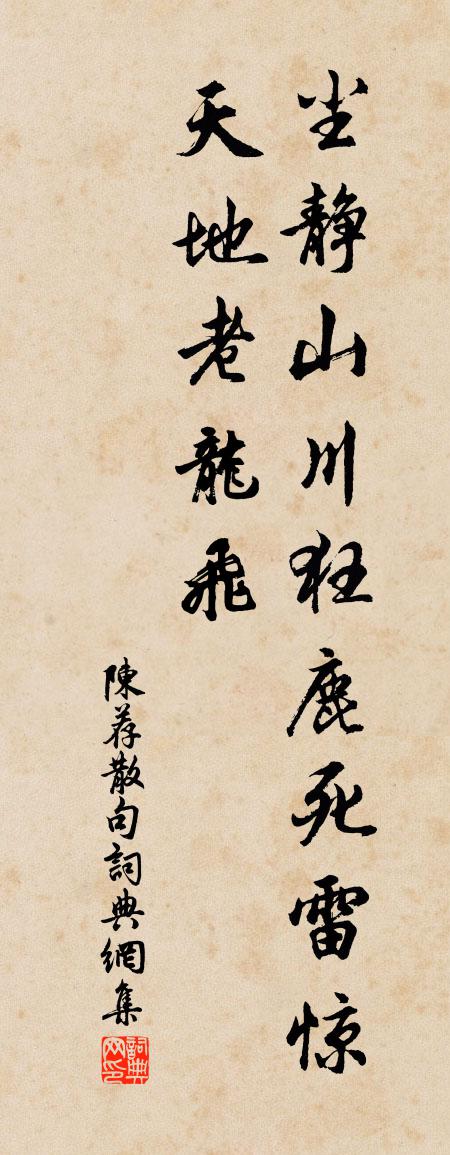 坐静山川狂鹿死雷惊
天地老龍飛
陳荐散句詞典網集
詞典网印